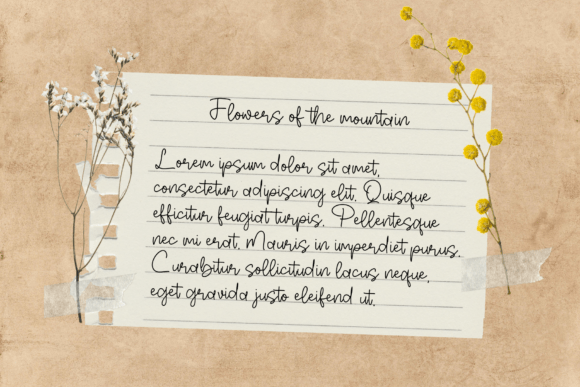 Flowers of the mountain
Lorem ipsum dolor sit amet,
consectetur adipiscing elit. Quisque
efficitur feugiat turpis. Pellentesque
nec mi erat. Mauris in imperdiet purus.
Curabitur sollicitudin lacus neque,
eget gravida justo eleifend ut.